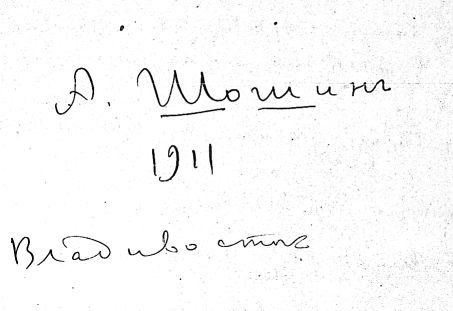 А. Шошин
1911
Владивосток